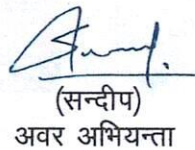 (सन्दीप)
अवर अभियन्ता